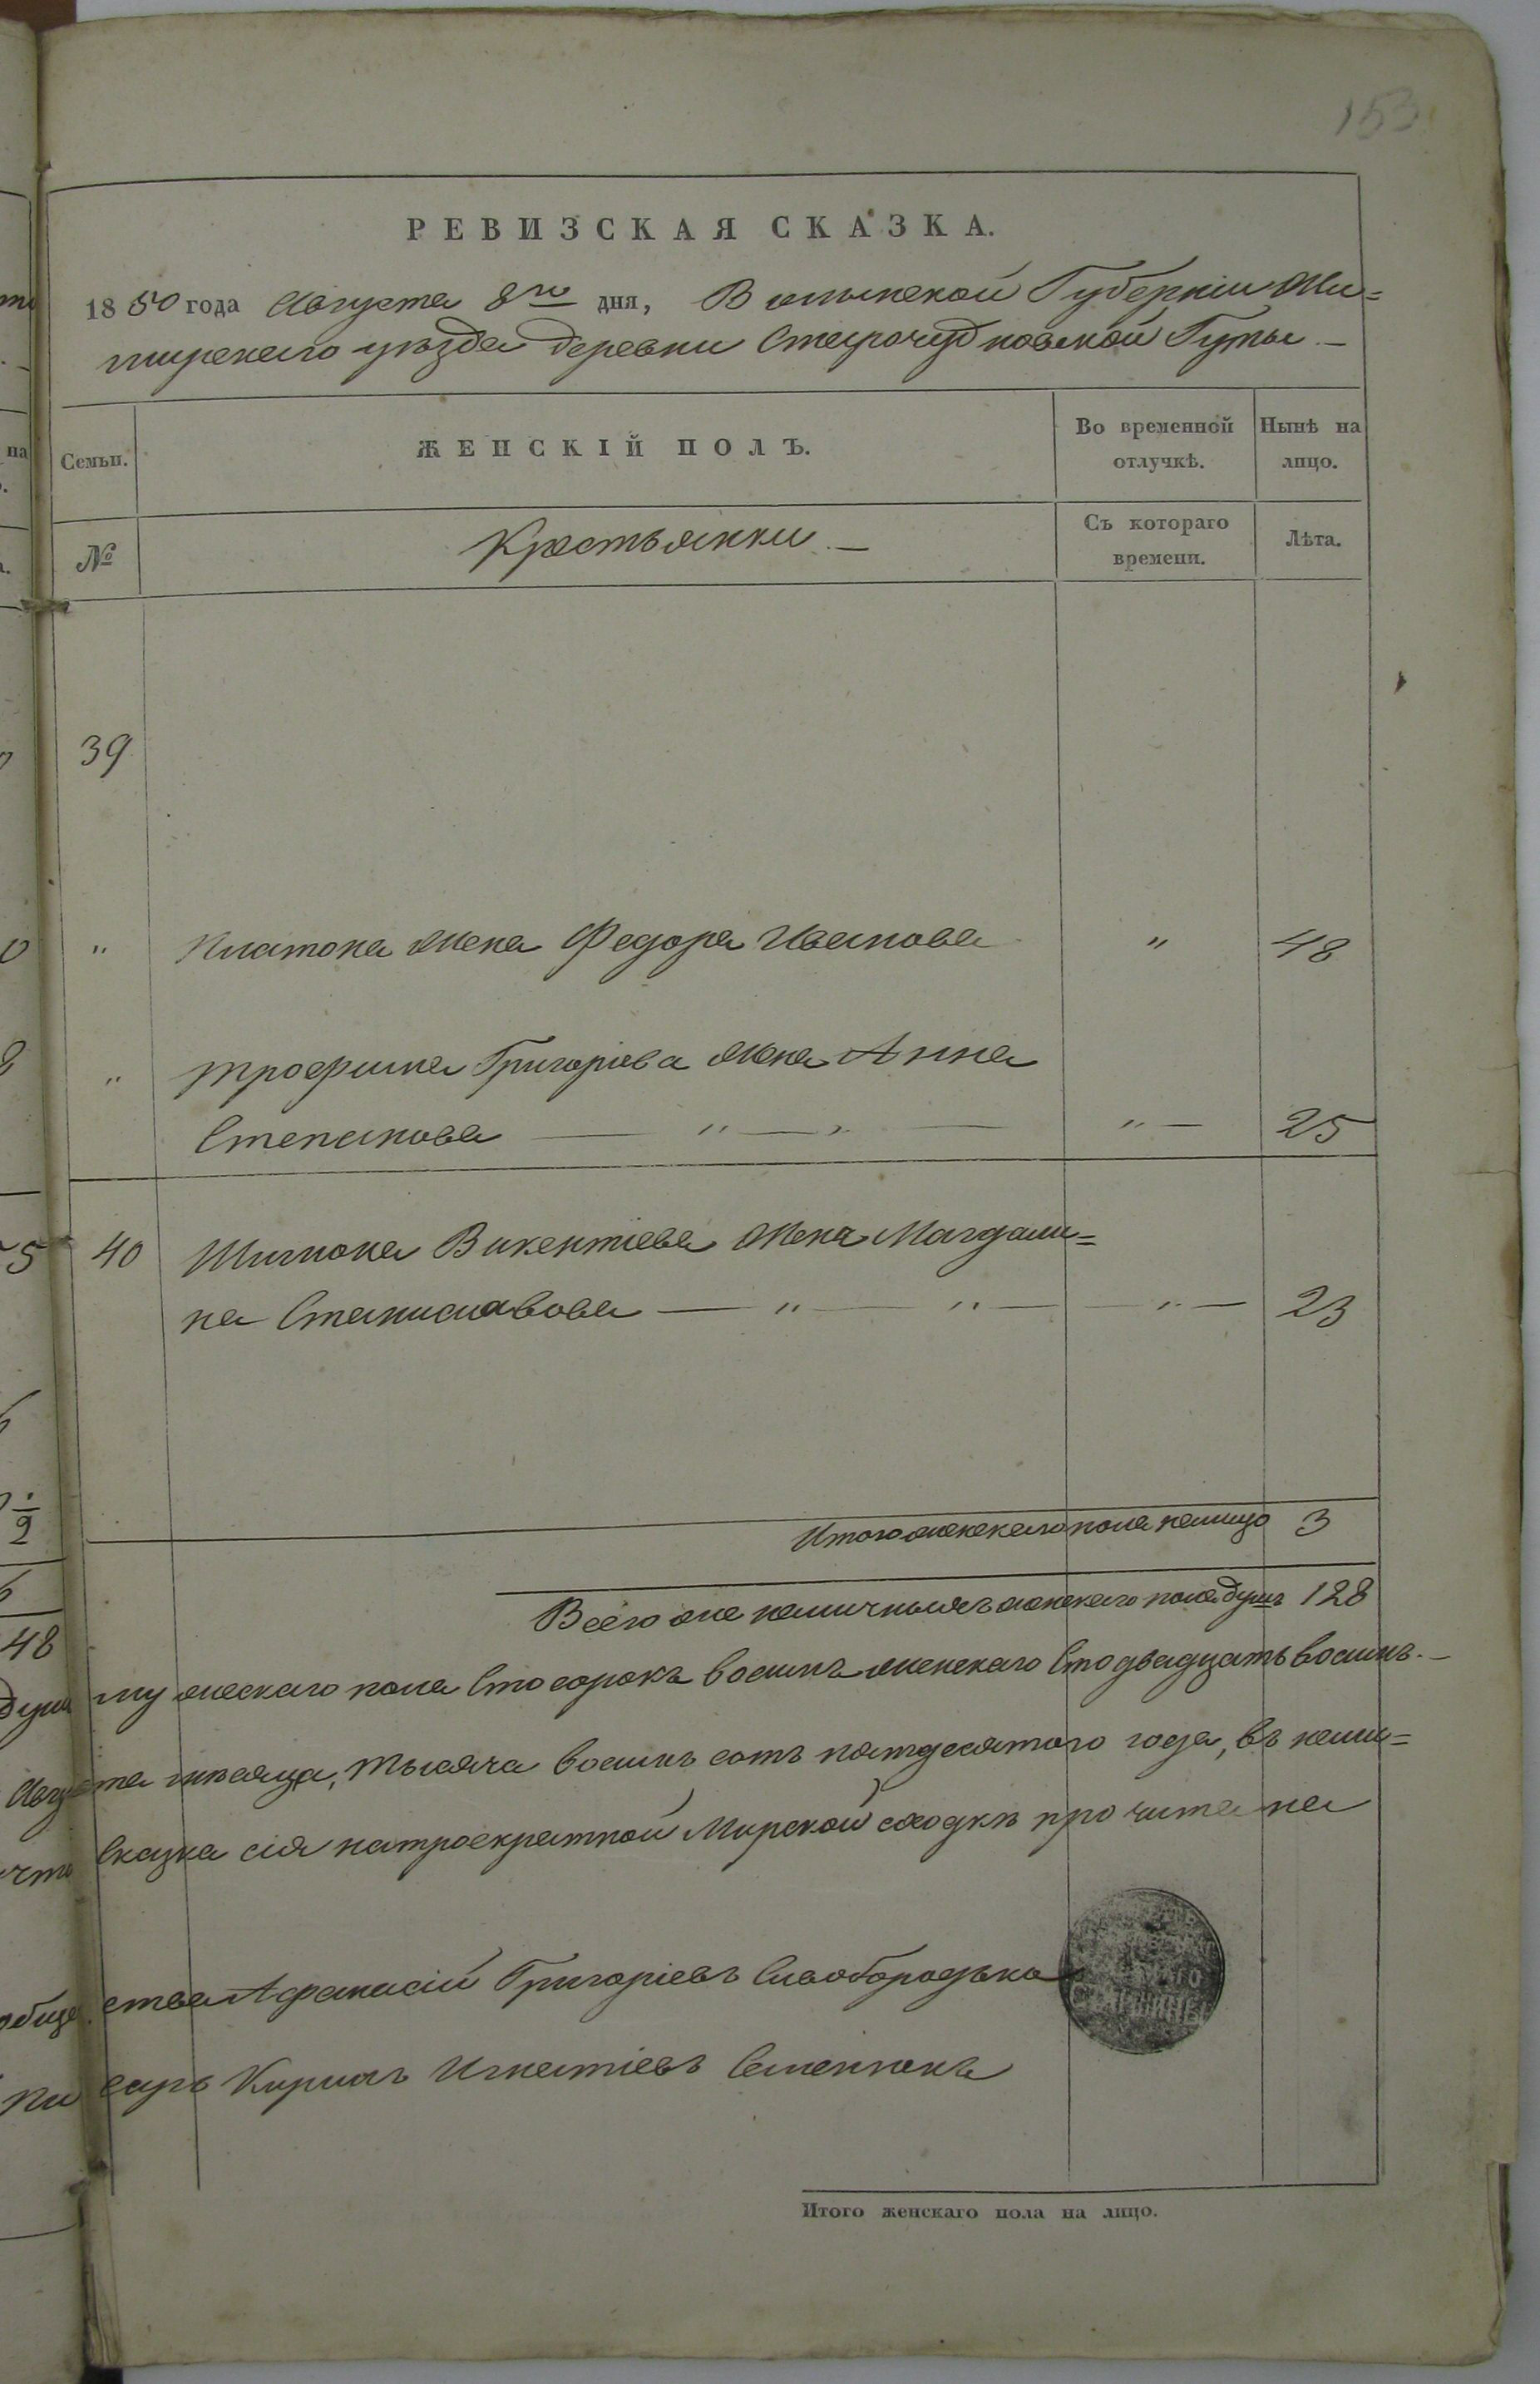 153
РЕВИЗСКАЯ СКАЗКА.
1850 года Августа 8го дня, Волынской Губернiи Жи=
тмирскаго уѣзда деревни Старочудновской Гуты
Семьи.
ЖЕНСКІЙ ПОЛЪ.
Во временной отлучкѣ.
Нынѣ на лицо.
№
Крестьянки
Съ котораго времени.
Лѣта.
39
" Платона жена Федора Иванова " 48
" Трофима Григоріева жена Анна
Степанова " " " 25
40 Шимона Викентіева жена Магдали=
на Станиславова " " " 23
Итого женскаго пола налицо 3
Всего же наличныхъ женскаго пола душъ 128
му жескаго пола Сто сорокъ восимъ женскаго Сто двадцать восимъ.
Августа мѣсяца, тысяча восимъ сотъ пятдесятого года, въ кани=
что сказка сія на троекратной Мирской сходкѣ прочитана
общества Афанасій Григоріевъ Сивобородько
Писарь Кирилъ Игнатіевъ Семенюкъ
Итого женскаго пола на лицо.